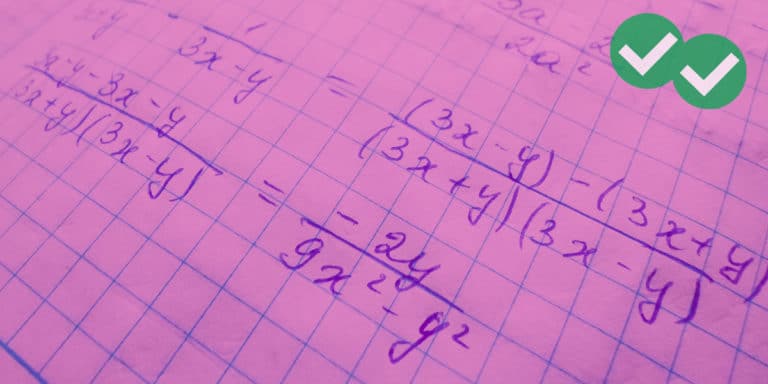 1/(3x-y) = ((3x-y)-(3x+y))/((3x+y)(3x-y))
(3x-y-3x-y)/((3x+y)(3x-y)) = -2y/(9x²-y²)